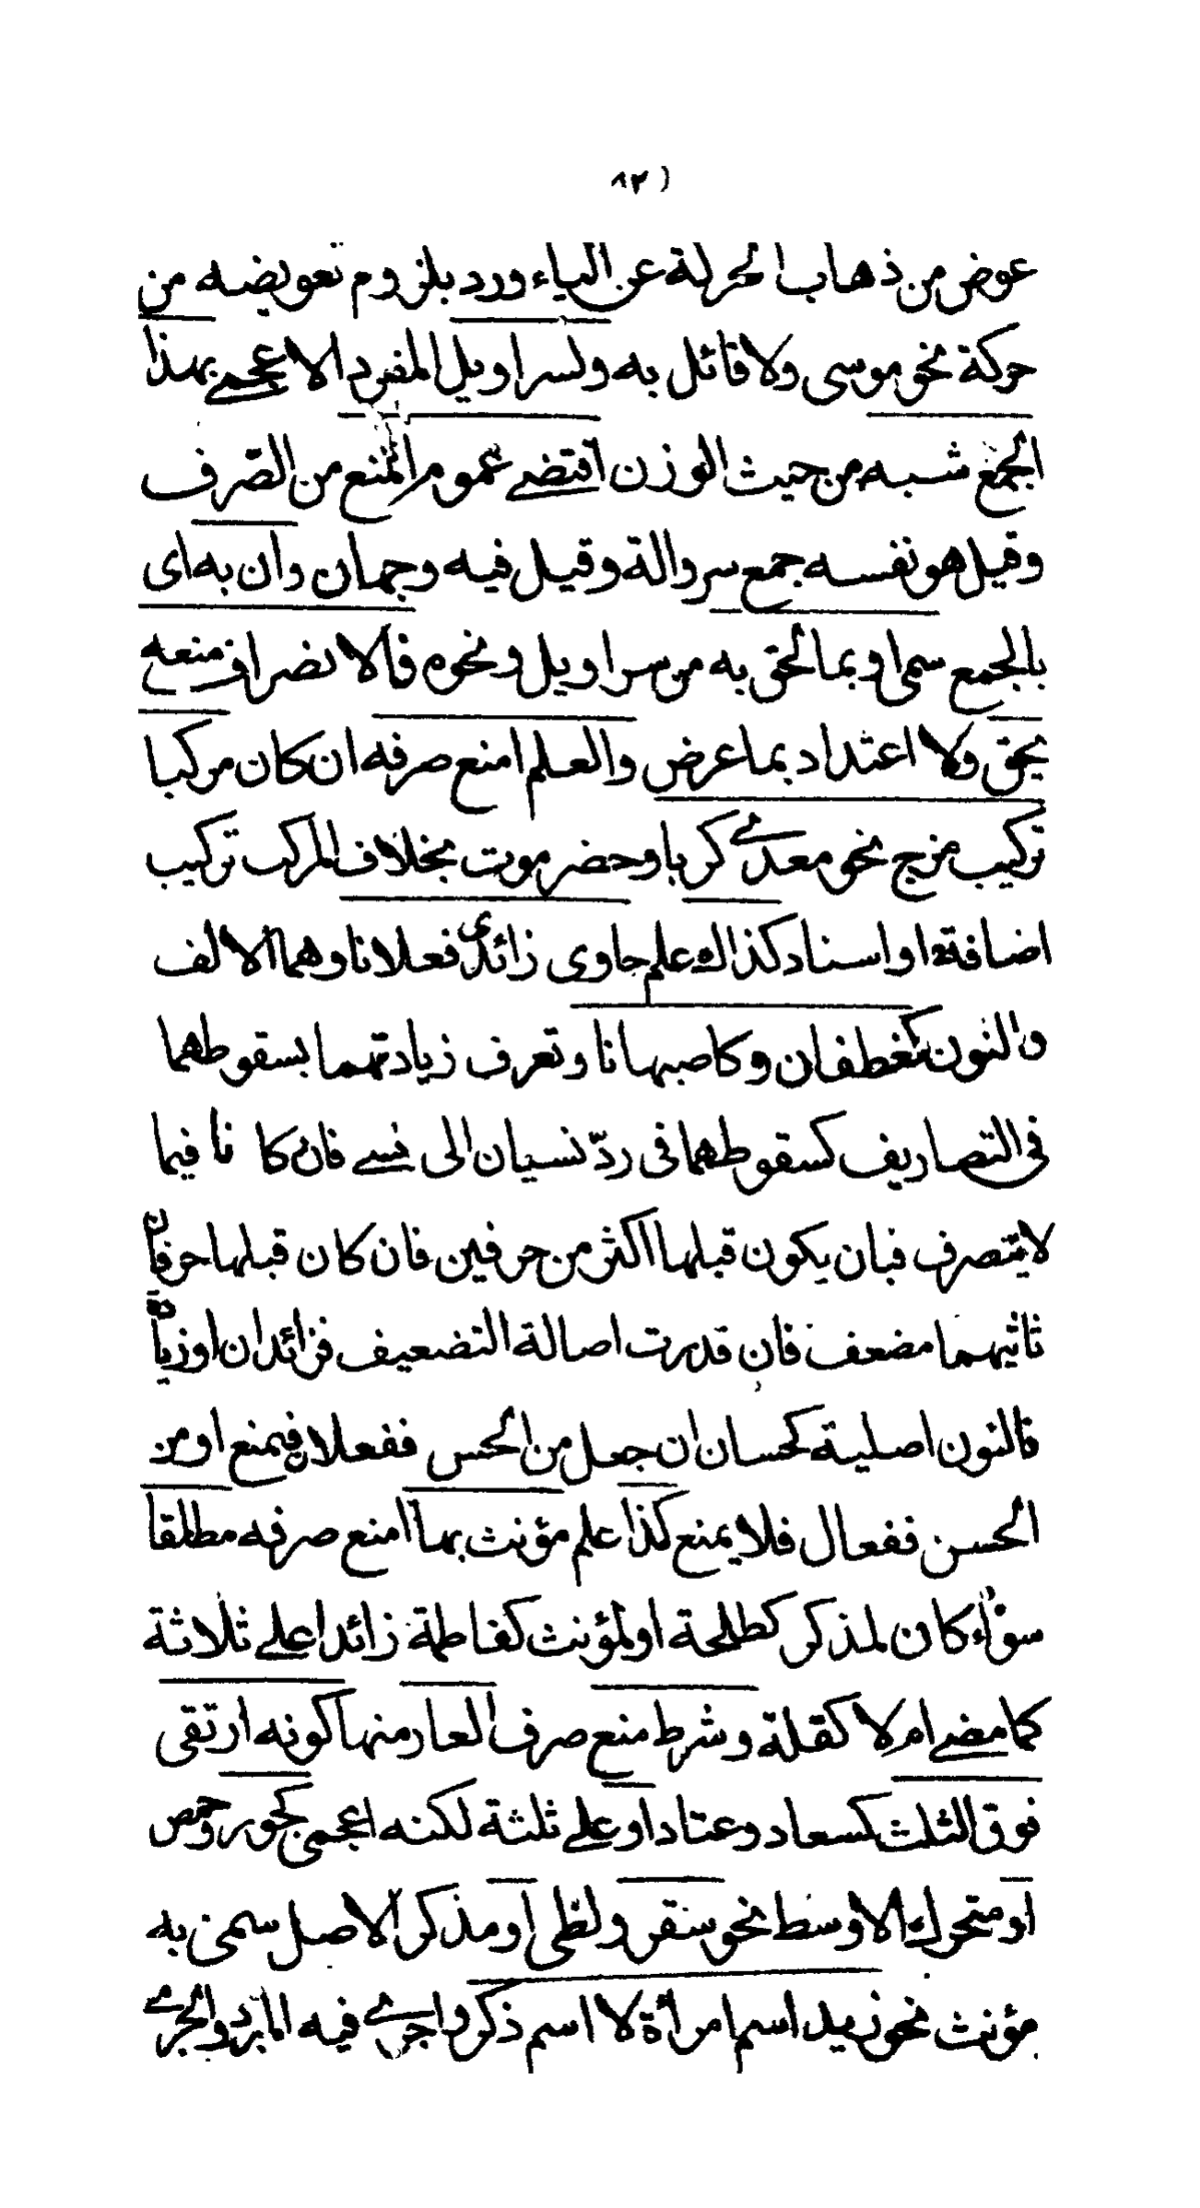 ٨٢ )
عوض من ذهاب الحركة عن الياء ورد بلزوم تعويضه من
حركة نحو موسى ولا قائل به ولسراويل المفرد الاعجمے بهذا
الجمع شبه من حيث الوزن اقتضے عموم المنع من الصّرف
وقيل هو نفسه جمع سروالة وقيل فيه وجهان وان به اى
بالجمع سمى او بما لحق به من سراويل ونحوه فالانصراف منعه
يحق ولا اعتداد بما عرض والعلم امنع صرفه ان كان مركبا
تركيب مزج نحو معدے كربا وحضرموت بخلاف المركب تركيب
اضافة او اسناد كذاك علم حاوى زائدى فعلانا وهما الالف
والنون كغطفان وكاصبهانا وتعرف زيادتهما بسقوطهما
فى التصاريف كسقوطهما فى ردّ نسيان الى نسے فان كا نا فيما
لا يتصرف فبان يكون قبلهما اكثر من حرفين فان كان قبلهما حرفان
ثانيهما مضعف فان قدرت اصالة التضعيف فزائدان او زيادة
فالنون اصلية كحسان ان جعل من الحس ففعلان فيمنع او من
الحسن ففعال فلا يمنع كذا علم مؤنث بهاٱ امنع صرفه مطلقا
سواء كان لمذكر كطلحة او لمؤنث كفاطمة زائدا علے ثلاثة
كما مضے ام لا كقلة وشرط منع صرف العار منها كونه ارتقى
فوق الثلث كسعاد وعتاد او علے ثلثة لكنه اعجمى كجور وحمص
او متحرك الاوسط نحو سقر ولظى او مذكر الاصل سمى به
مؤنث نحو زيد اسم امرأة لا اسم ذكر واجرے فيه المبرد والجرمے